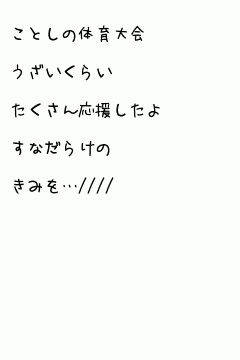 ことしの体育大会
うざいくらい
たくさん応援したよ
すなだらけの
きみを…////